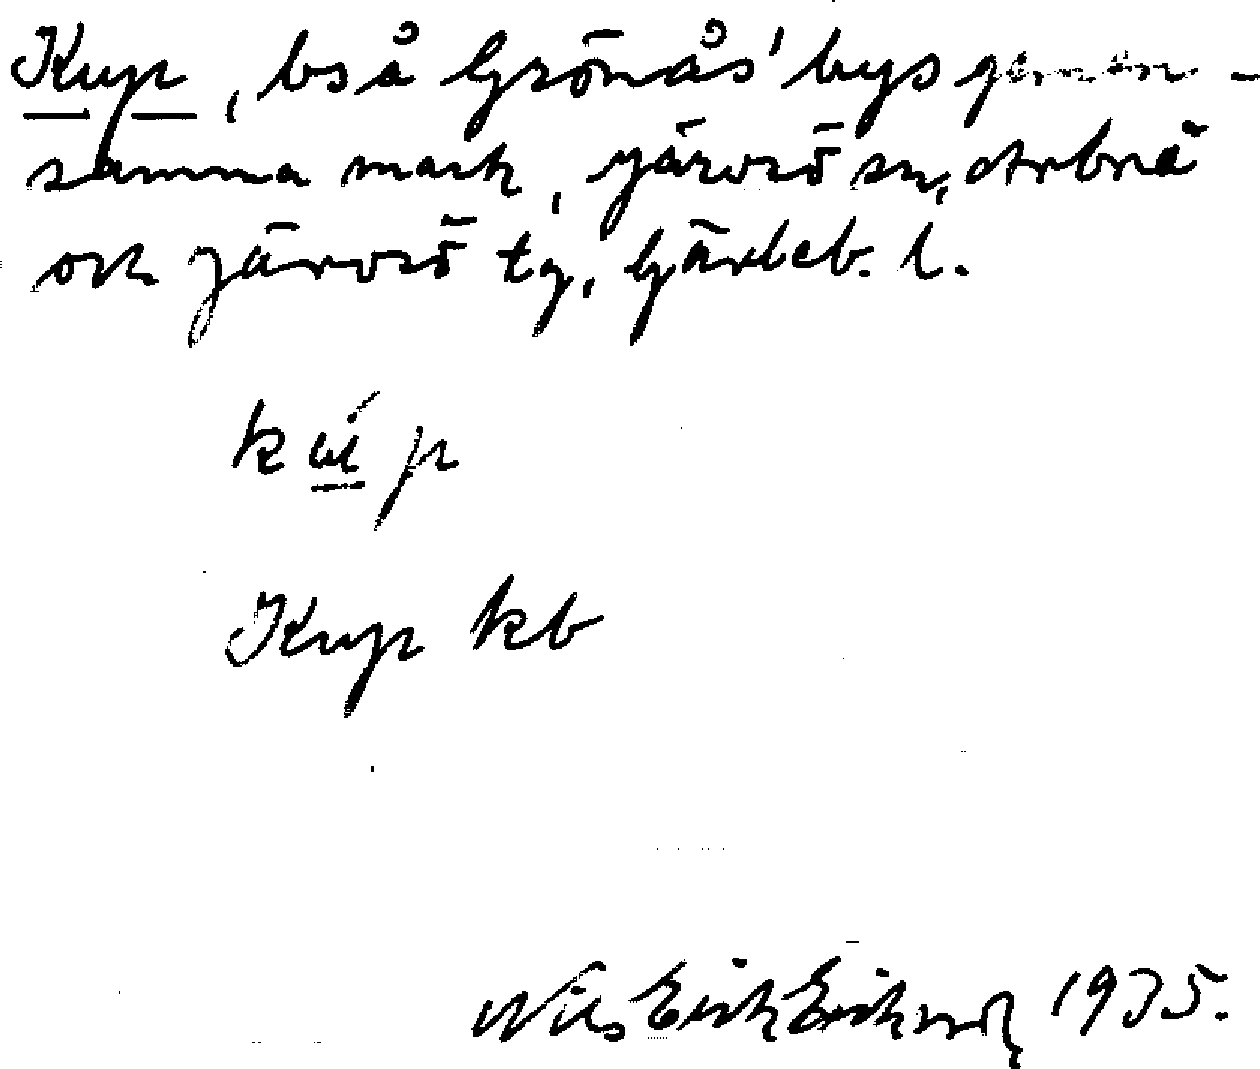 Kup, bs å Grönås' bys gemen-
samma mark, Järvsö sn, Arbrå
och Järvsö tg, Gävleb. l.
kúp
Kup kb
Nils Erik Eriksson 1935.